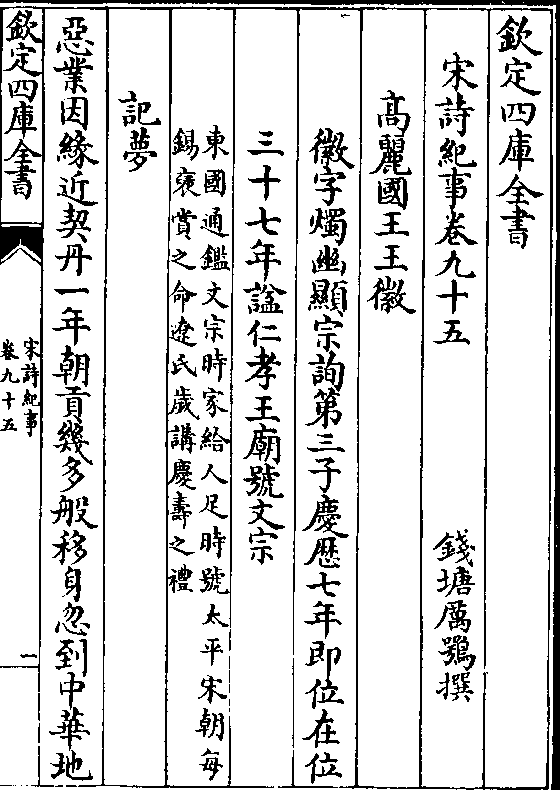 欽定四庫全書
宋詩紀事卷九十五
錢塘厲鶚撰
高麗國王王徽
徽字燭幽顯宗詢第三子慶歴七年即位在位
三十七年諡仁孝王廟號文宗
東國通鑑文宗時家給人足時號太平宋朝每
錫褒賞之命遼氏歲講慶壽之禮
記夢
惡業因緣近契丹一年朝貢幾多般移身忽到中華地
欽定四庫全書
宋詩紀事
卷九十五
一